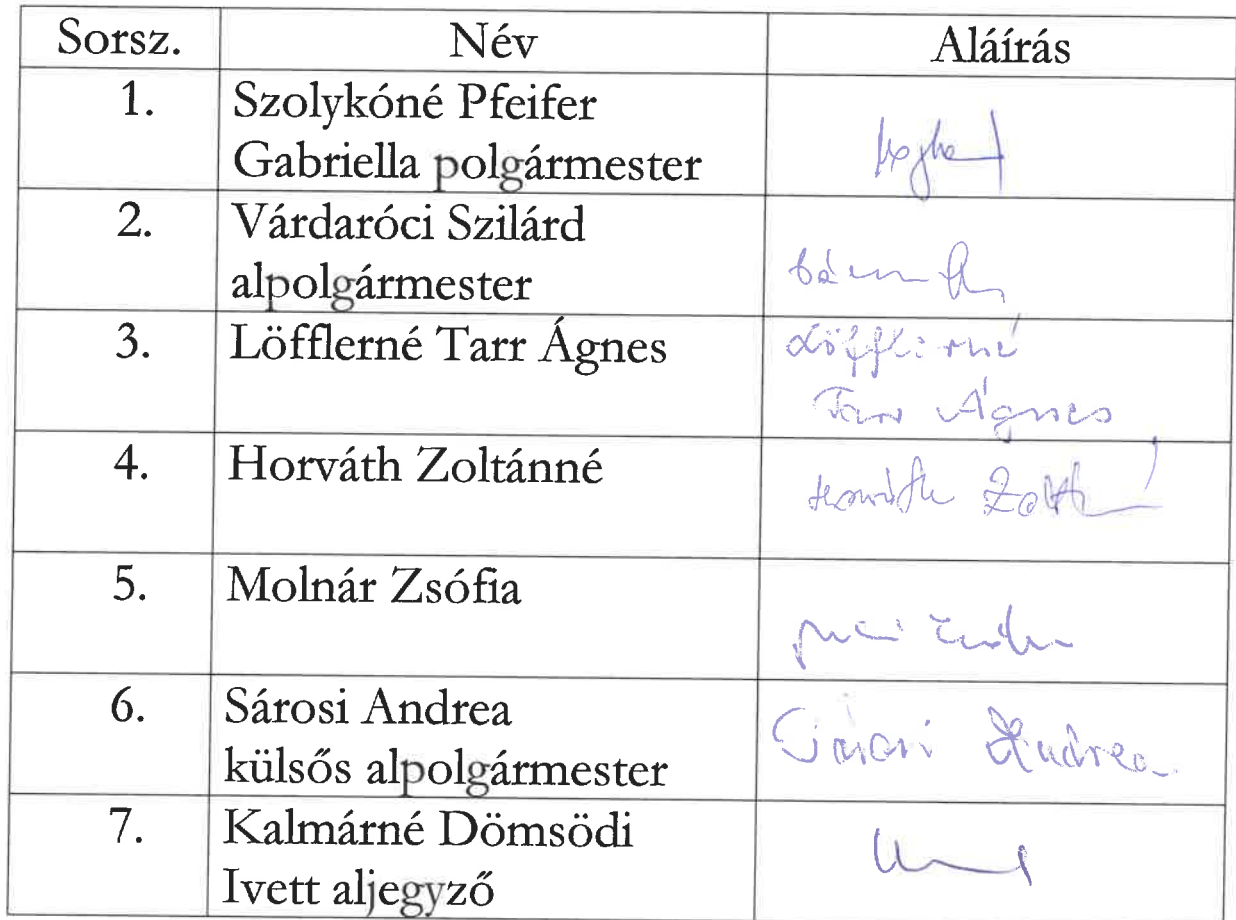 Sorsz. Név Aláírás
1. Szolykóné Pfeifer
Gabriella polgármester
2. Várdaróci Szilárd
alpolgármester
3. Löfflerné Tarr Ágnes Löfflerné
Tarr Ágnes
4. Horváth Zoltánné Horváth
5. Molnár Zsófia
6. Sárosi Andrea Sárosi Andrea
külsős alpolgármester
7. Kalmárné Dömsödi
Ivett aljegyző